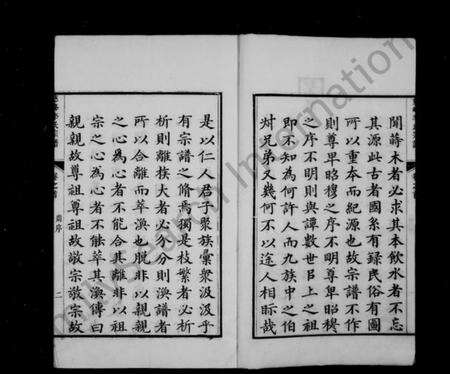 聞蒔木者必求其本飲水者不忘
其源此古者國系有錄民俗有圖
所以重本而紀源也故宗譜不作
則尊卑昭穆之序不明尊卑昭穆
之序不明則與譚數世㠯上之祖
即不知為何許人而九族中之伯
叔兄弟又幾何不以途人相眎哉
是以仁人君子眾族彙眾汲汲乎
有宗譜之脩焉獨是枝繁者必析
析則離族大者必分分則渙譜者
所以合離而萃渙也脫非以親親
之心為心者不能合其離非以祖
宗之心為心者不能萃其渙傳曰
親親故尊祖尊祖故敬宗敬宗故
舊序
二
My China Information